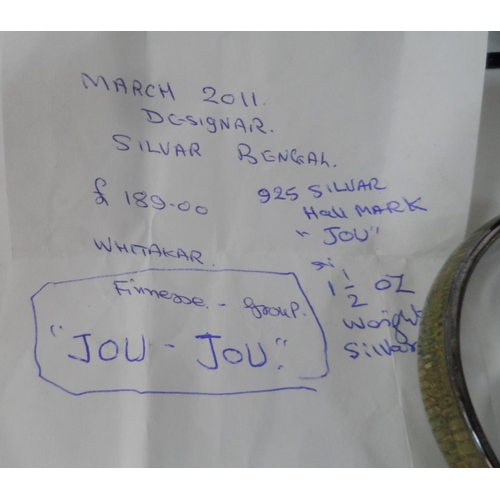 MARCH 2011.
DESIGNAR.
SILVAR BENGAL.
£ 189-00
925 SILVAR
Hall MARK
"JOU"
WHITAKAR.
1 1/2 OZ
Waight
Silvar
Finnesse. - group.
"JOU - JOU."